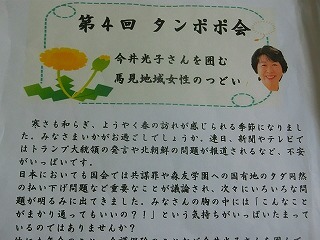 第４回 タンポポ会
今井光子さんを囲む
馬見地域女性のつどい
寒さも和らぎ、ようやく春の訪れが感じられる季節になりました。
みなさまいかがお過ごしでしょうか。連日、新聞やテレビで
はトランプ大統領の発言や北朝鮮の問題が報道されるなど、不安
がいっぱいです。
日本においても国会では共謀罪や森友学園への国有地のタダ同然
の払い下げ問題など重要なことが議論され、次々にいろいろな問
題が明るみに出てきました。みなさんの胸の中には「こんなこと
がまかり通ってもいいの？！」という気持ちがいっぱいたまって
いるのではありませんか？